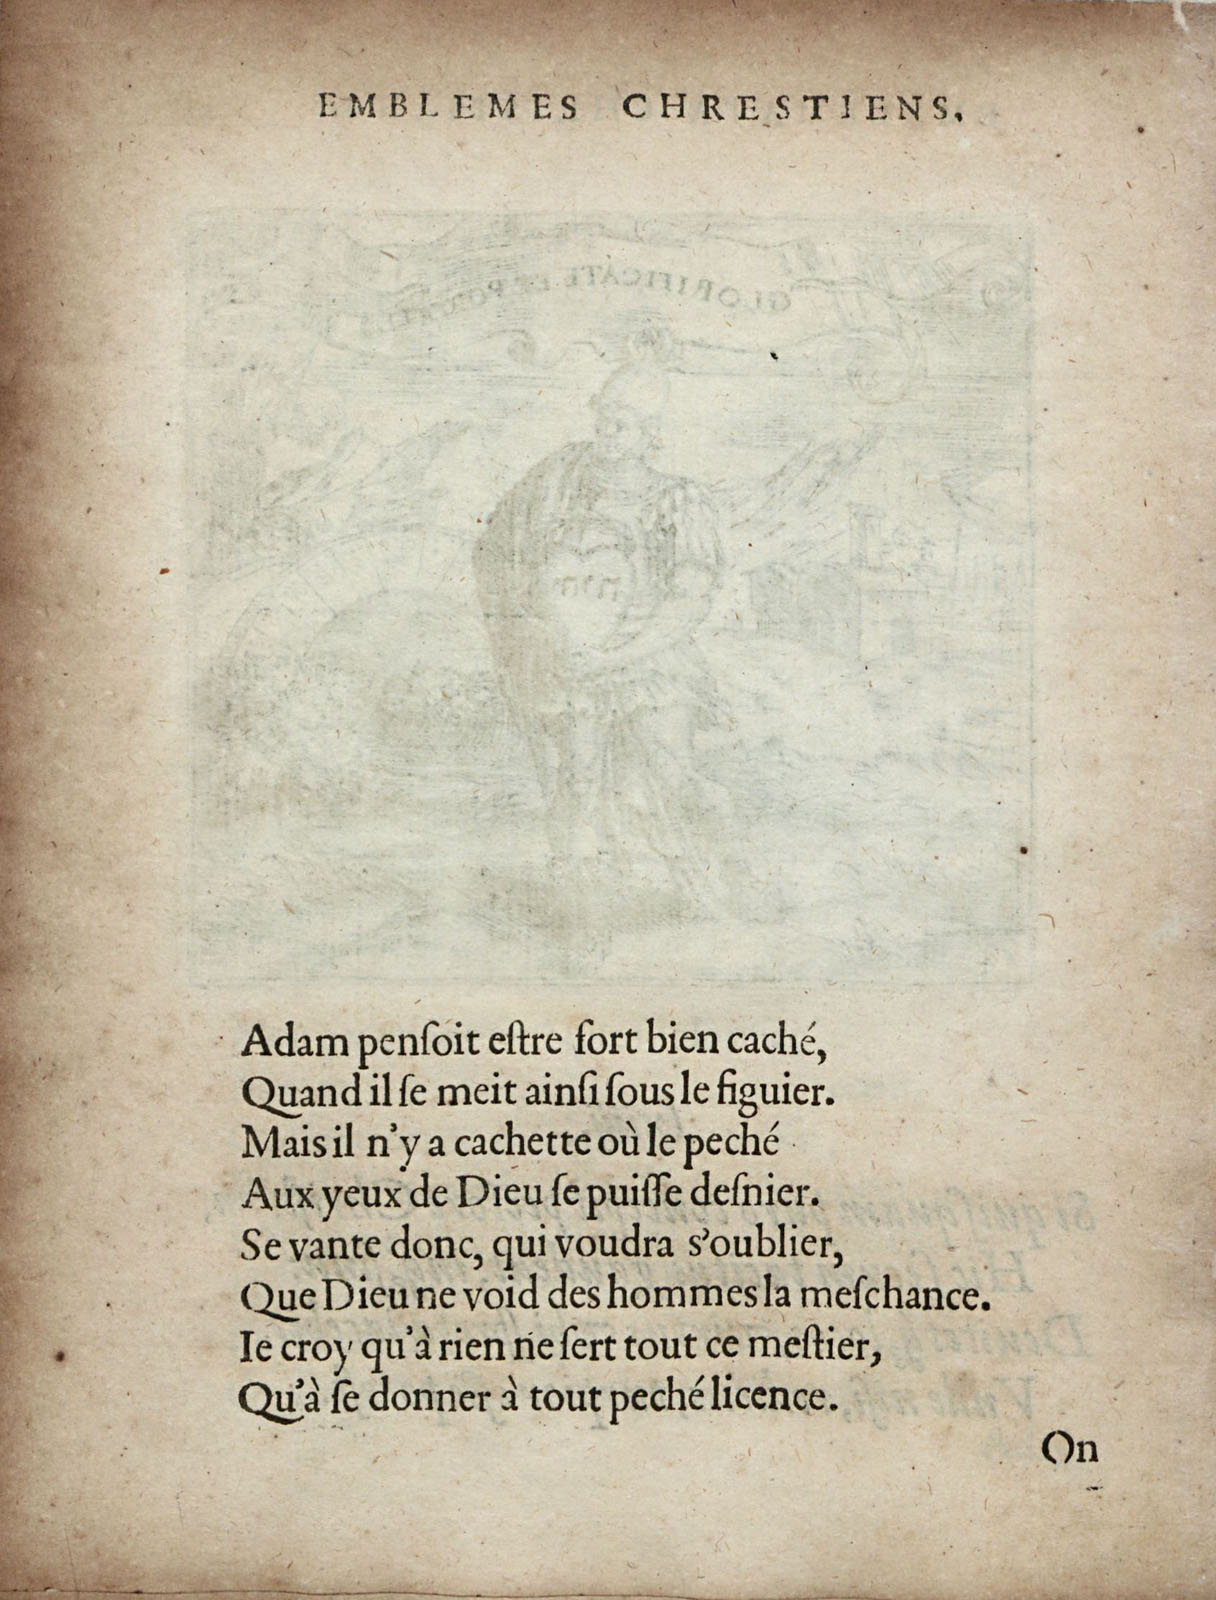 EMBLEMES CHRESTIENS.
Adam penſoit eſtre fort bien caché,
Quand il ſe meit ainſi ſous le figuier.
Mais il n'y a cachette où le peché
Aux yeux de Dieu ſe puiſſe deſnier.
Se vante donc, qui voudra s'oublier,
Que Dieu ne void des hommes la meſchance.
Ie croy qu'à rien ne ſert tout ce meſtier,
Qu'à ſe donner à tout peché licence.
On